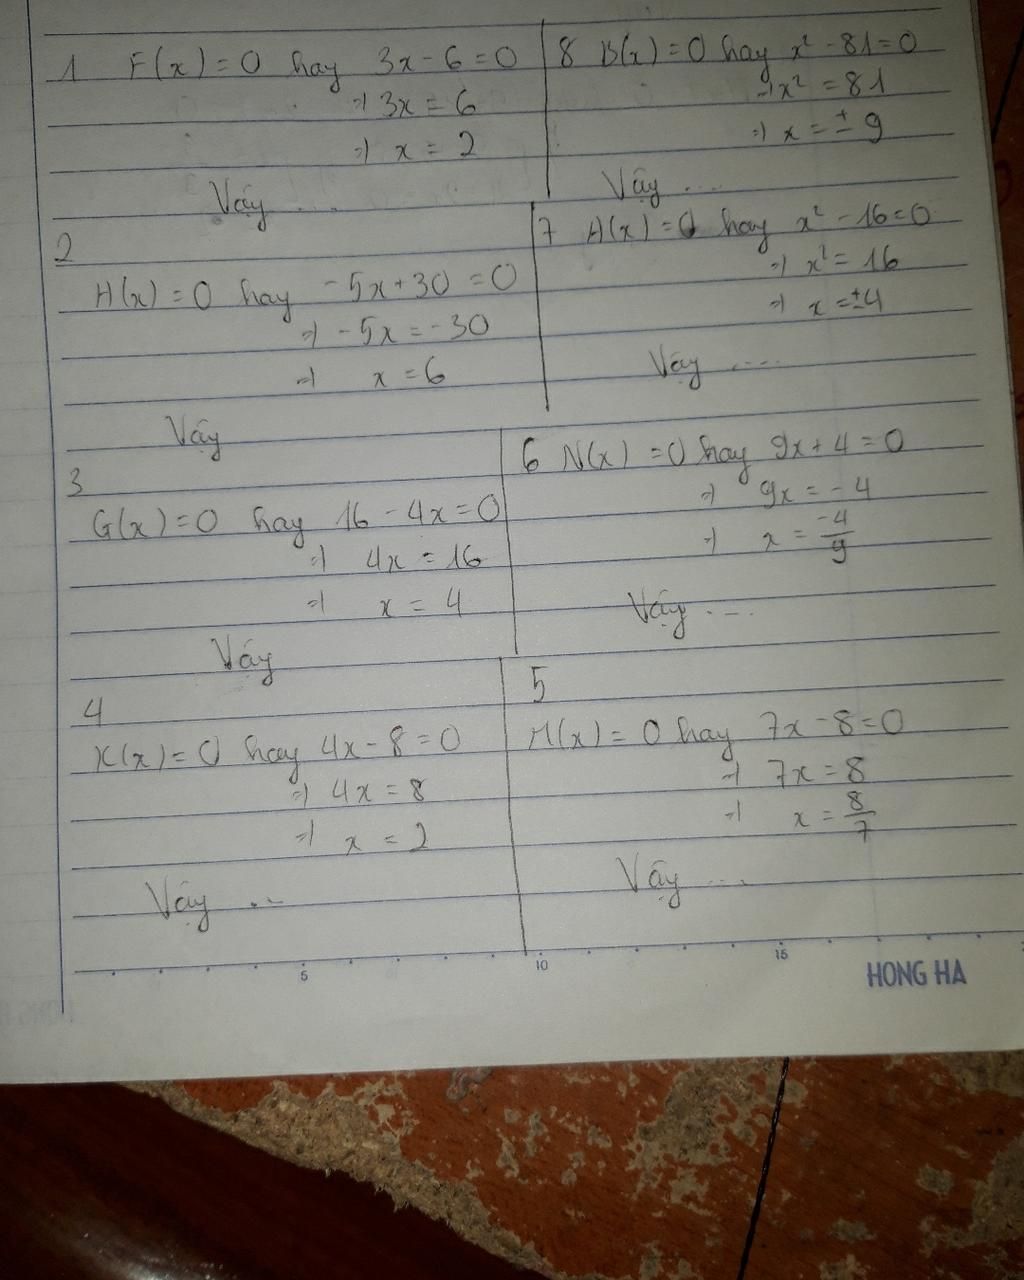 1 F(x) = 0 hay 3x - 6 = 0
=> 3x = 6
=> x = 2
Vậy ....
2
H(x) = 0 hay -5x + 30 = 0
=> -5x = -30
=> x = 6
Vậy
3
G(x) = 0 hay 16 - 4x = 0
=> 4x = 16
=> x = 4
Vậy
4
K(x) = 0 hay 4x - 8 = 0
=> 4x = 8
=> x = 2
Vậy ...
8 B(x) = 0 hay x² - 81 = 0
=> x² = 81
=> x = ± 9
Vậy ....
7 A(x) = 0 hay x² - 16 = 0
=> x² = 16
=> x = ±4
Vậy ....
6 N(x) = 0 hay 9x + 4 = 0
=> 9x = -4
=> x = -4/9
Vậy ...
5
M(x) = 0 hay 7x - 8 = 0
=> 7x = 8
=> x = 8/7
Vậy ...
5 10 15
HONG HA